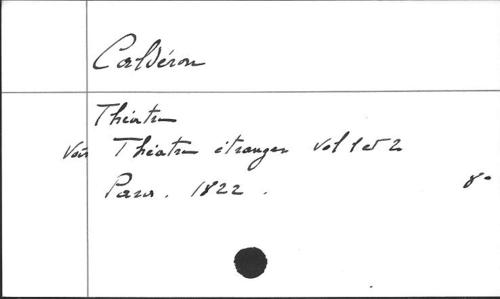 Caldéron
Théatre
Voir Théatre étranger vol 1 et 2
Paris. 1822. 8°